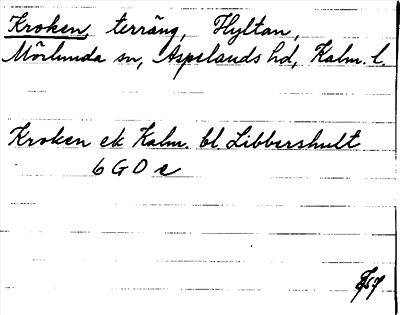 Kroken, terräng, Hyltan,
Mörlunda sn, Aspelands hd, Kalm. l.
Kroken ek Kalm. bl. Libbershult
6 G 0 e